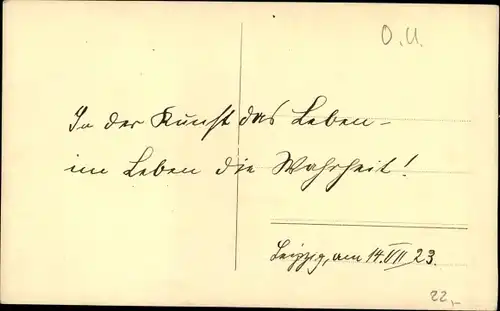 O. U.
In der Kunst das Leben –
im Leben die Wahrheit!
Leipzig, am 14. VII 23.
22,-